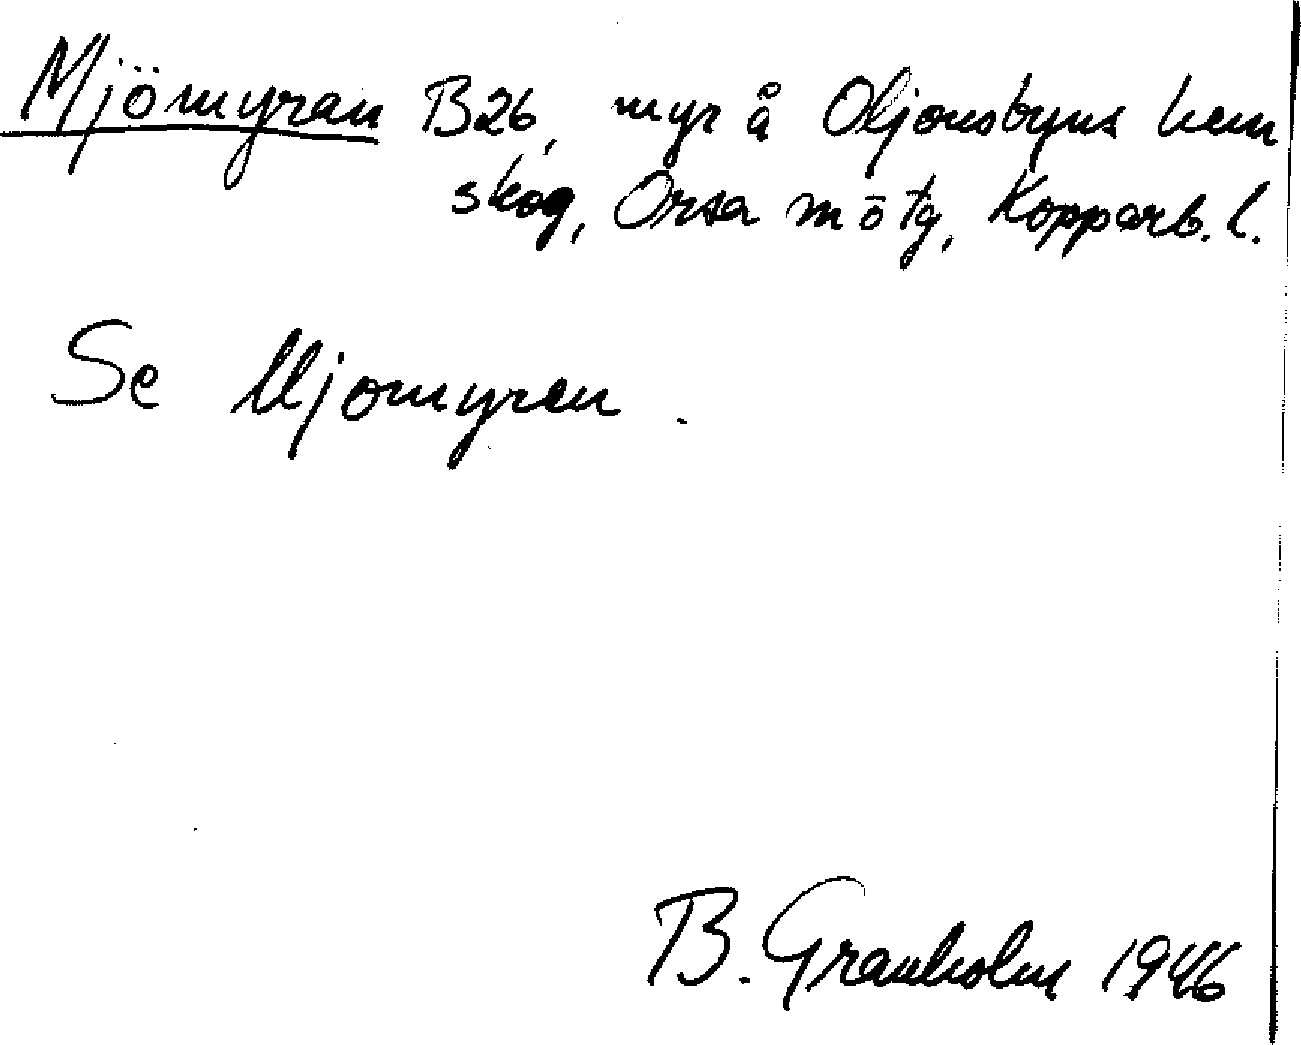 Mjömyran B26, myr å Oljonsbyns hem
skog, Orsa m ö tg, Kopparb. l.
Se Mjomyren.
B. Granholm 1946